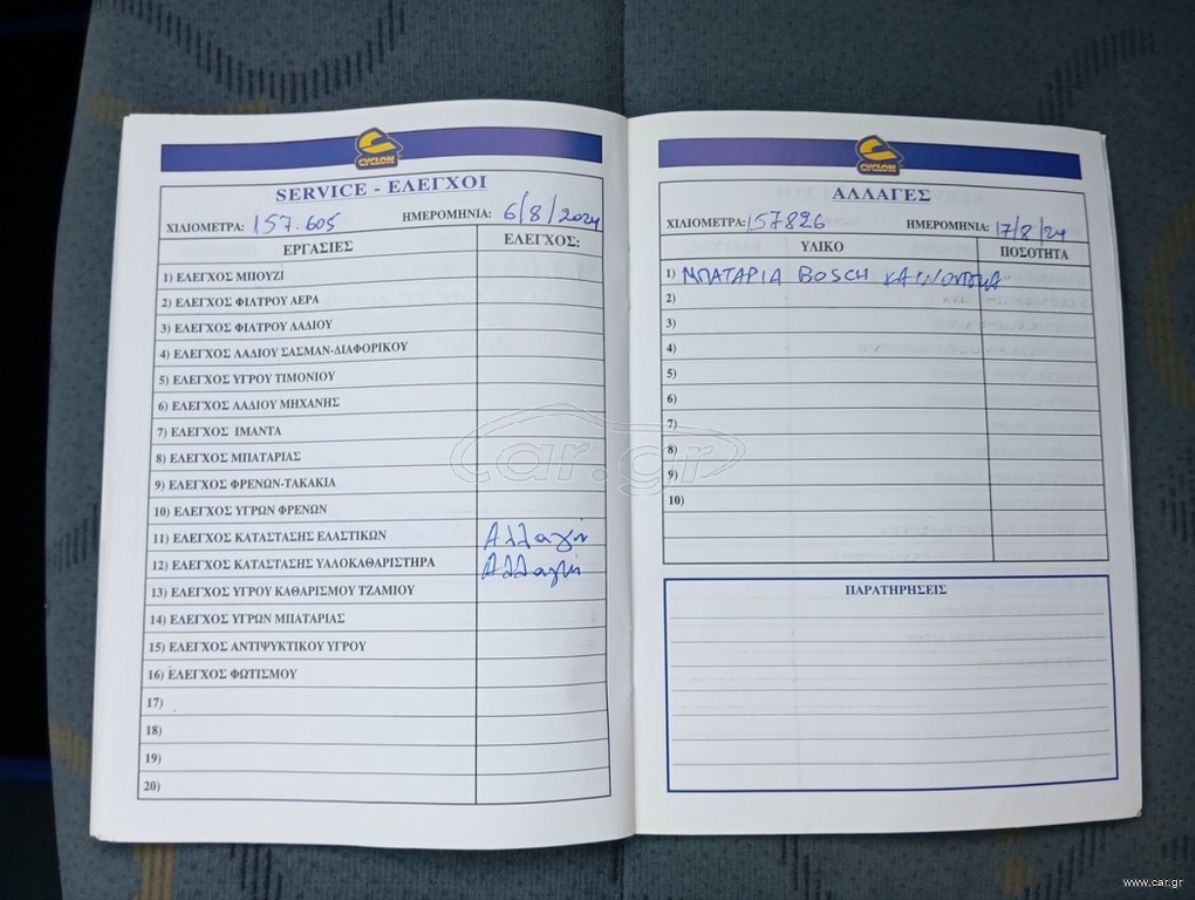 CYCLON
SERVICE - ΕΛΕΓΧΟΙ
ΧΙΛΙΟΜΕΤΡΑ: 157.605 ΗΜΕΡΟΜΗΝΙΑ: 6/8/2024
ΕΡΓΑΣΙΕΣ ΕΛΕΓΧΟΣ:
1) ΕΛΕΓΧΟΣ ΜΠΟΥΖΙ
2) ΕΛΕΓΧΟΣ ΦΙΛΤΡΟΥ ΑΕΡΑ
3) ΕΛΕΓΧΟΣ ΦΙΛΤΡΟΥ ΛΑΔΙΟΥ
4) ΕΛΕΓΧΟΣ ΛΑΔΙΟΥ ΣΑΣΜΑΝ-ΔΙΑΦΟΡΙΚΟΥ
5) ΕΛΕΓΧΟΣ ΥΓΡΟΥ ΤΙΜΟΝΙΟΥ
6) ΕΛΕΓΧΟΣ ΛΑΔΙΟΥ ΜΗΧΑΝΗΣ
7) ΕΛΕΓΧΟΣ ΙΜΑΝΤΑ
8) ΕΛΕΓΧΟΣ ΜΠΑΤΑΡΙΑΣ
9) ΕΛΕΓΧΟΣ ΦΡΕΝΩΝ-ΤΑΚΑΚΙΑ
10) ΕΛΕΓΧΟΣ ΥΓΡΩΝ ΦΡΕΝΩΝ
11) ΕΛΕΓΧΟΣ ΚΑΤΑΣΤΑΣΗΣ ΕΛΑΣΤΙΚΩΝ Αλλαγή
12) ΕΛΕΓΧΟΣ ΚΑΤΑΣΤΑΣΗΣ ΥΑΛΟΚΑΘΑΡΙΣΤΗΡΑ Αλλαγή
13) ΕΛΕΓΧΟΣ ΥΓΡΟΥ ΚΑΘΑΡΙΣΜΟΥ ΤΖΑΜΙΟΥ
14) ΕΛΕΓΧΟΣ ΥΓΡΩΝ ΜΠΑΤΑΡΙΑΣ
15) ΕΛΕΓΧΟΣ ΑΝΤΙΨΥΚΤΙΚΟΥ ΥΓΡΟΥ
16) ΕΛΕΓΧΟΣ ΦΩΤΙΣΜΟΥ
17)
18)
19)
20)
CYCLON
ΑΛΛΑΓΕΣ
ΧΙΛΙΟΜΕΤΡΑ: 157826 ΗΜΕΡΟΜΗΝΙΑ: 17/8/24
ΥΛΙΚΟ ΠΟΣΟΤΗΤΑ
1) ΜΠΑΤΑΡΙΑ BOSCH ΚΑΙΝΟΥΡΓΙΑ
2)
3)
4)
5)
6)
7)
8)
9)
10)
ΠΑΡΑΤΗΡΗΣΕΙΣ
car.gr
www.car.gr